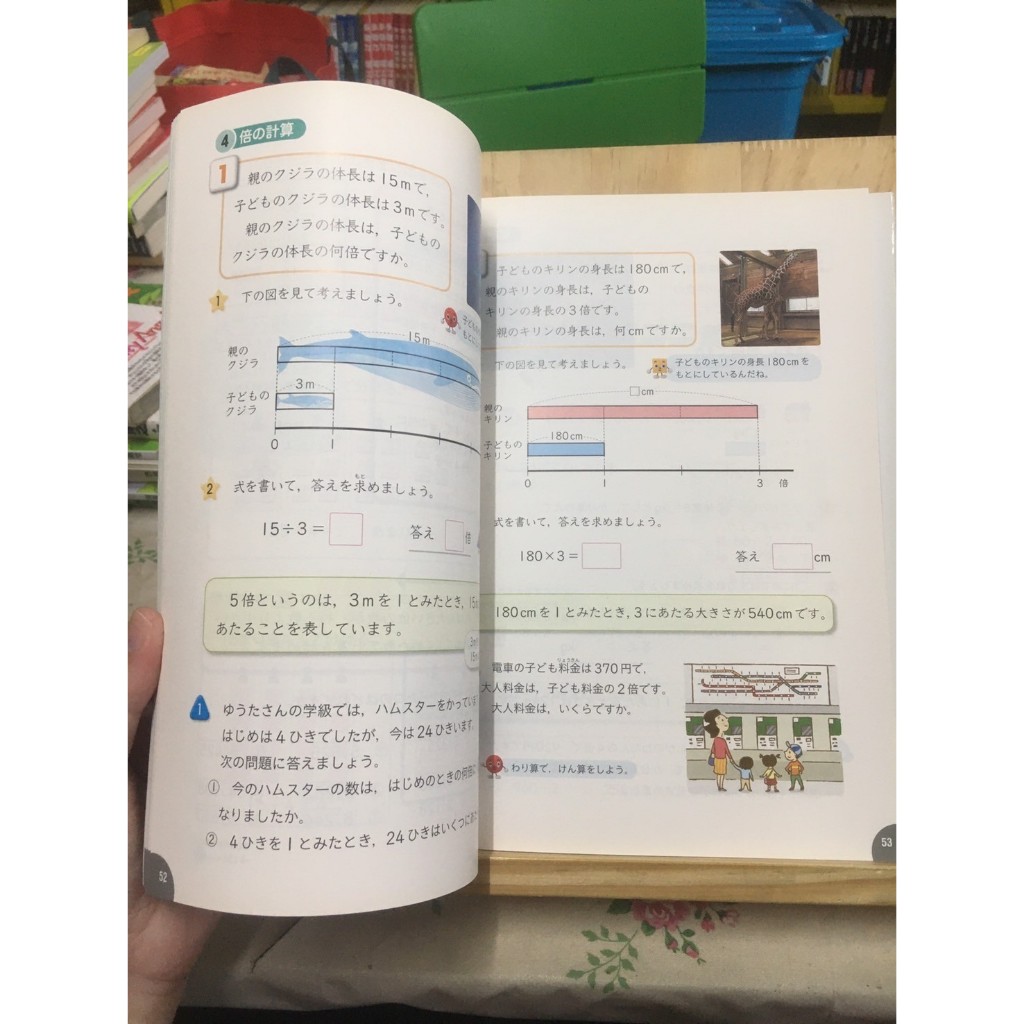 4 倍の計算
1
親のクジラの体長は15mで,
子どものクジラの体長は3mです。
親のクジラの体長は,子どもの
クジラの体長の何倍ですか。
1 下の図を見て考えましょう。
子ども
もとに
親の
クジラ
15m
子どもの
クジラ
3m
0 1
2 式を書いて,答えを求めましょう。
もと
15÷3= 答え 倍
5倍というのは,3mを1とみたとき,15m
あたることを表しています。
3m
15m
1 ゆうたさんの学級では,ハムスターをかってい
はじめは4ひきでしたが,今は24ひきいます。
次の問題に答えましょう。
① 今のハムスターの数は,はじめのときの何倍に
なりましたか。
② 4ひきを1とみたとき,24ひきはいくつに
52
子どものキリンの身長は180cmで,
親のキリンの身長は,子どもの
キリンの身長の3倍です。
親のキリンの身長は,何cmですか。
下の図を見て考えましょう。
子どものキリンの身長180cmを
もとにしているんだね。
□cm
親の
キリン
子どもの
キリン
180cm
0 1 3 倍
式を書いて,答えを求めましょう。
180×3= 答え cm
180cmを1とみたとき,3にあたる大きさが540cmです。
りょうきん
電車の子ども料金は370円で,
大人料金は,子ども料金の2倍です。
大人料金は,いくらですか。
わり算で,けん算をしよう。
53